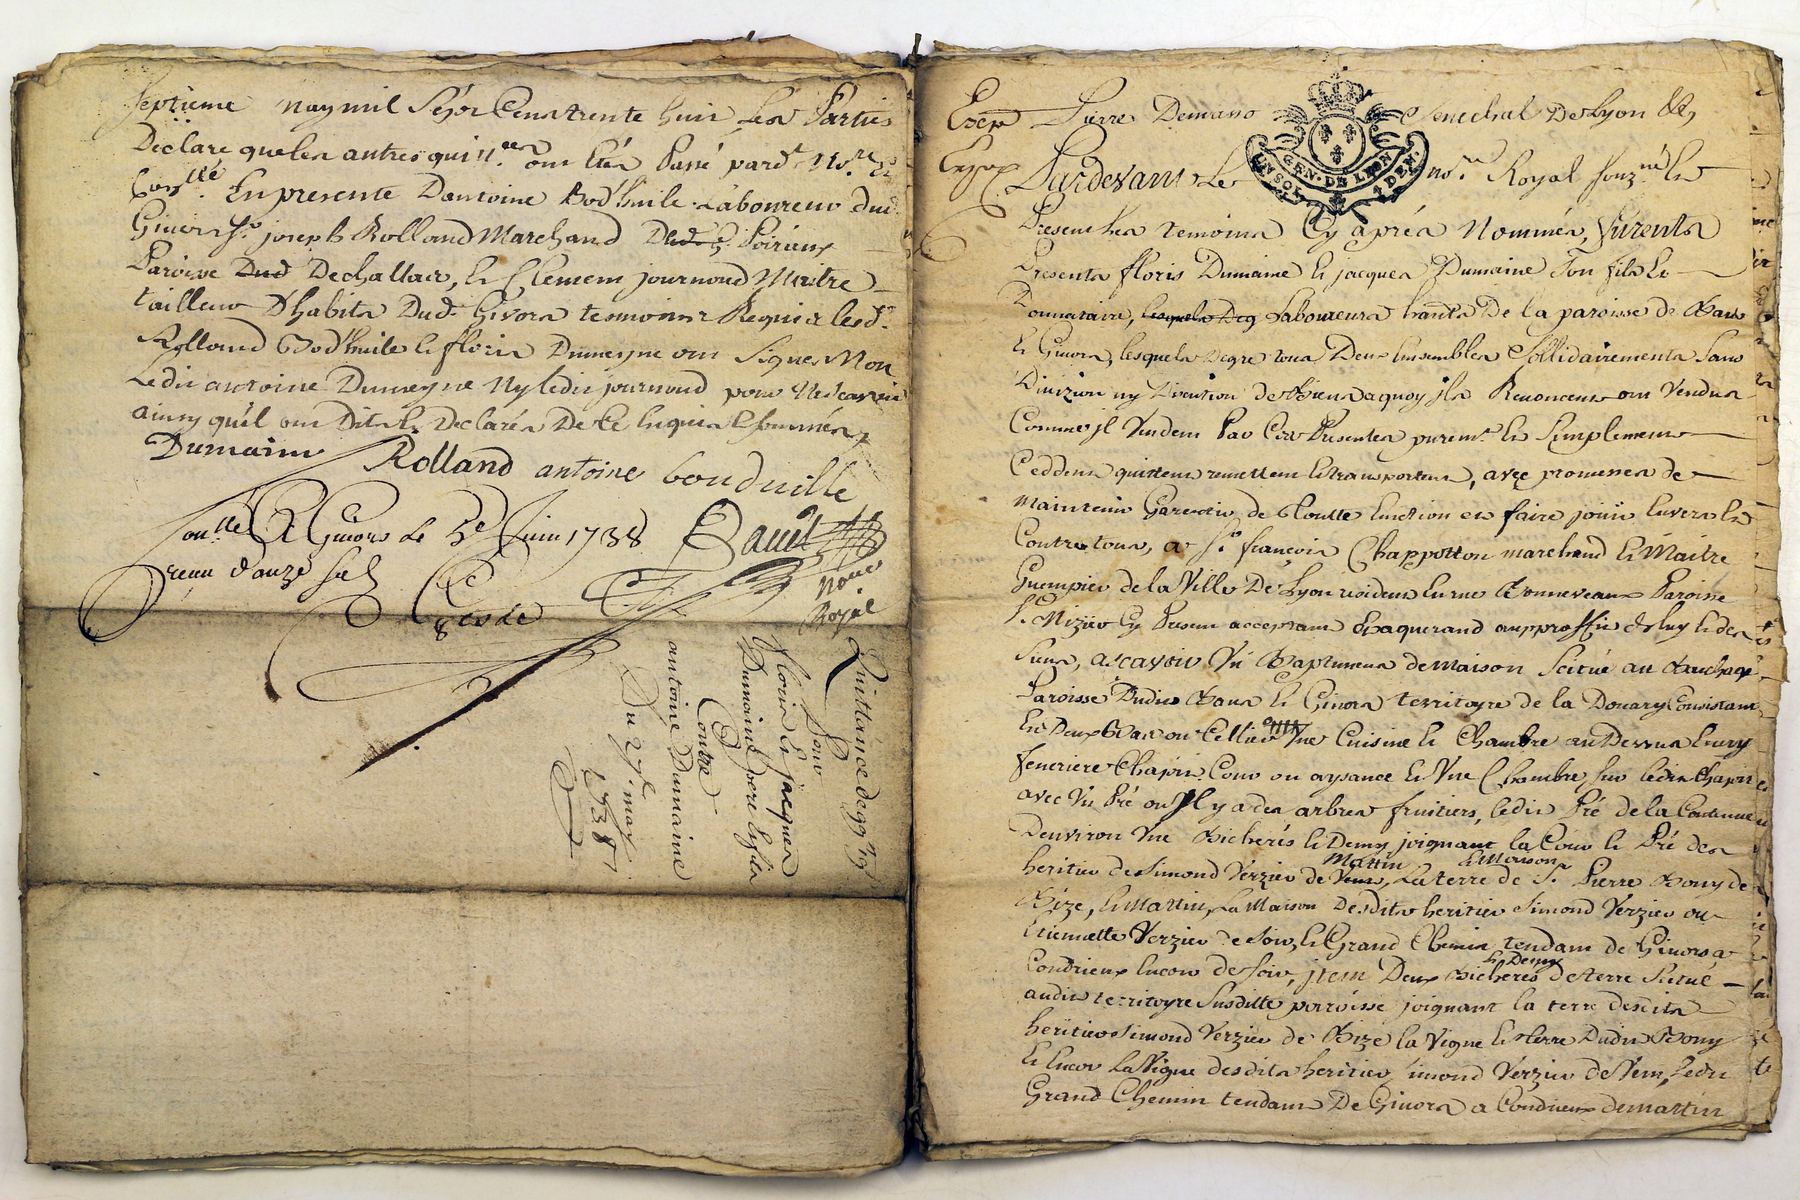 septieme may mil Sept Cent trente huit Les Parties
Declare que les autres quitt.ces ont Etés Passé pard.t No.re et
Con.lle En presente D'antoine Bod'huile Laboureur dud.
Givors S.r joseph Rolland Marchand Poirieux
Paroisse Dechallas, et Clement journoud Maitre
tailleur D'habits Dud. Givors tesmoins Requis Lesd.
Rolland Bod'huile et floris Dumayne ont signes Non
Ledit antoine Dumeyne Ny ledit journoud pour Ne scavoir
ainsy qu'il ont Dit et Declarés De Ce Enquis et sommés
Dumaine Rolland antoine boudville
Con.lle A Givors le 5e Juin 1738
receu d'auze sols
Royal
Quittance de 99 lt 19 s
Pour
floris Et jacques
Dumaine pere et fils
Contre
antoine Dumaine
Du 27.e may
1738
Pierre Demasso Senechal De Lyon &c
GEN. DE LION
Pardevant Le no.re Royal souz.né Et
Presens les temoins Cy aprés Nommés, furents
Presents floris Dumaine et jacques Dumaine son fils Et
Donnataire, Laboureurs hants De la paroisse de Bans
Et Givors, lesquels Degre tous Deux Ensembles Sollidairements Sans
Division ny Discution de Biens a quoy ils Renoncent ont Vendus
Comme jl Vendent Par Ces Presentes purem.t et Simplement
Ceddent quittent remettent et transportent, avec promesses de
maintenir Garentir de toutte Eviction et faire jouir Envers Et
Contre tous, a S.r françois Chappotton marchand Et Maitre
Guempier de la Ville De Lyon residant En rue Bonneveaux Paroisse
S.t Nizier Cy Present acceptant Et aquerand au proffit de luy et des
Siens, ascavoir Un Baptiment de maison Scitué au
Paroisse Dudit Bans Et Givors territoyre de la Douary Consistant
En Deux Bas ou Cellier Une Cuisine Et Chambre au Dessus Ecury
feneriere Chapit Cour ou aysance Et Une Chambre sur ledit Chapit
avec Un Pré ou Jl y a des arbres fruitiers, ledit Pré de la Contenue
Denviron Une Bicherés Et Demy joignant la Cour Et Pré des
Mattin & Maison
heritier de Simond Verzier de La terre de S.r Pierre Bony de
Bize, Et Mattin, La Maison Desdits heritier Simond Verzier ou
Etiennette Verzier de Soir, Et Grand Chemin tendant de Givors a
Condrieux Encore de Soir, jtem Deux Bicherés Et Demy de terre Scitué
audit territoyre Susditte parroisse joignant la terre desdits
heritier Simond Verzier de Bize la Vigne et terre Dudit Bony
Et Encor La Vigne desdits heritier Simond Verzier de Vent, Ledit
Grand Chemin tendant De Givors a Condrieux de mattin